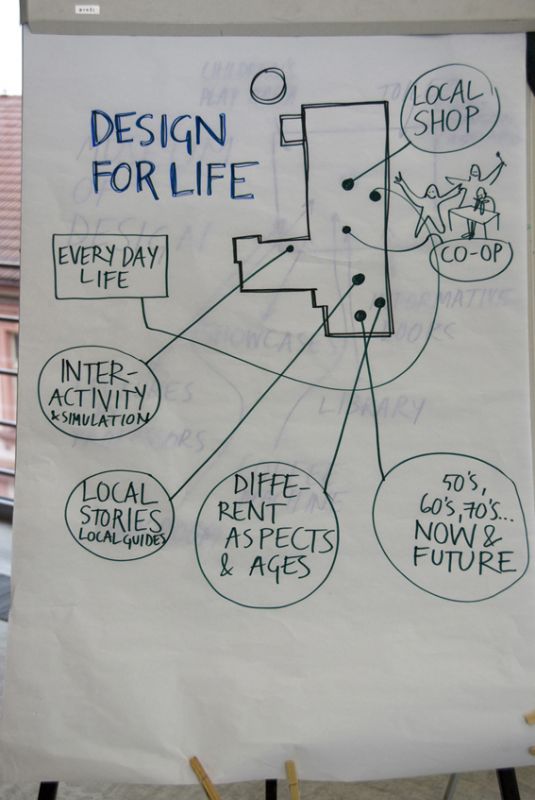 DESIGN
FOR LIFE
LOCAL
SHOP
CO-OP
EVERY DAY
LIFE
INTER-
ACTIVITY
& SIMULATION
LOCAL
STORIES
LOCAL GUIDES
DIFFE-
RENT
ASPECTS
& AGES
50'S,
60'S, 70'S...
NOW &
FUTURE
SHOWCASE
LIBRARY
DESIGN